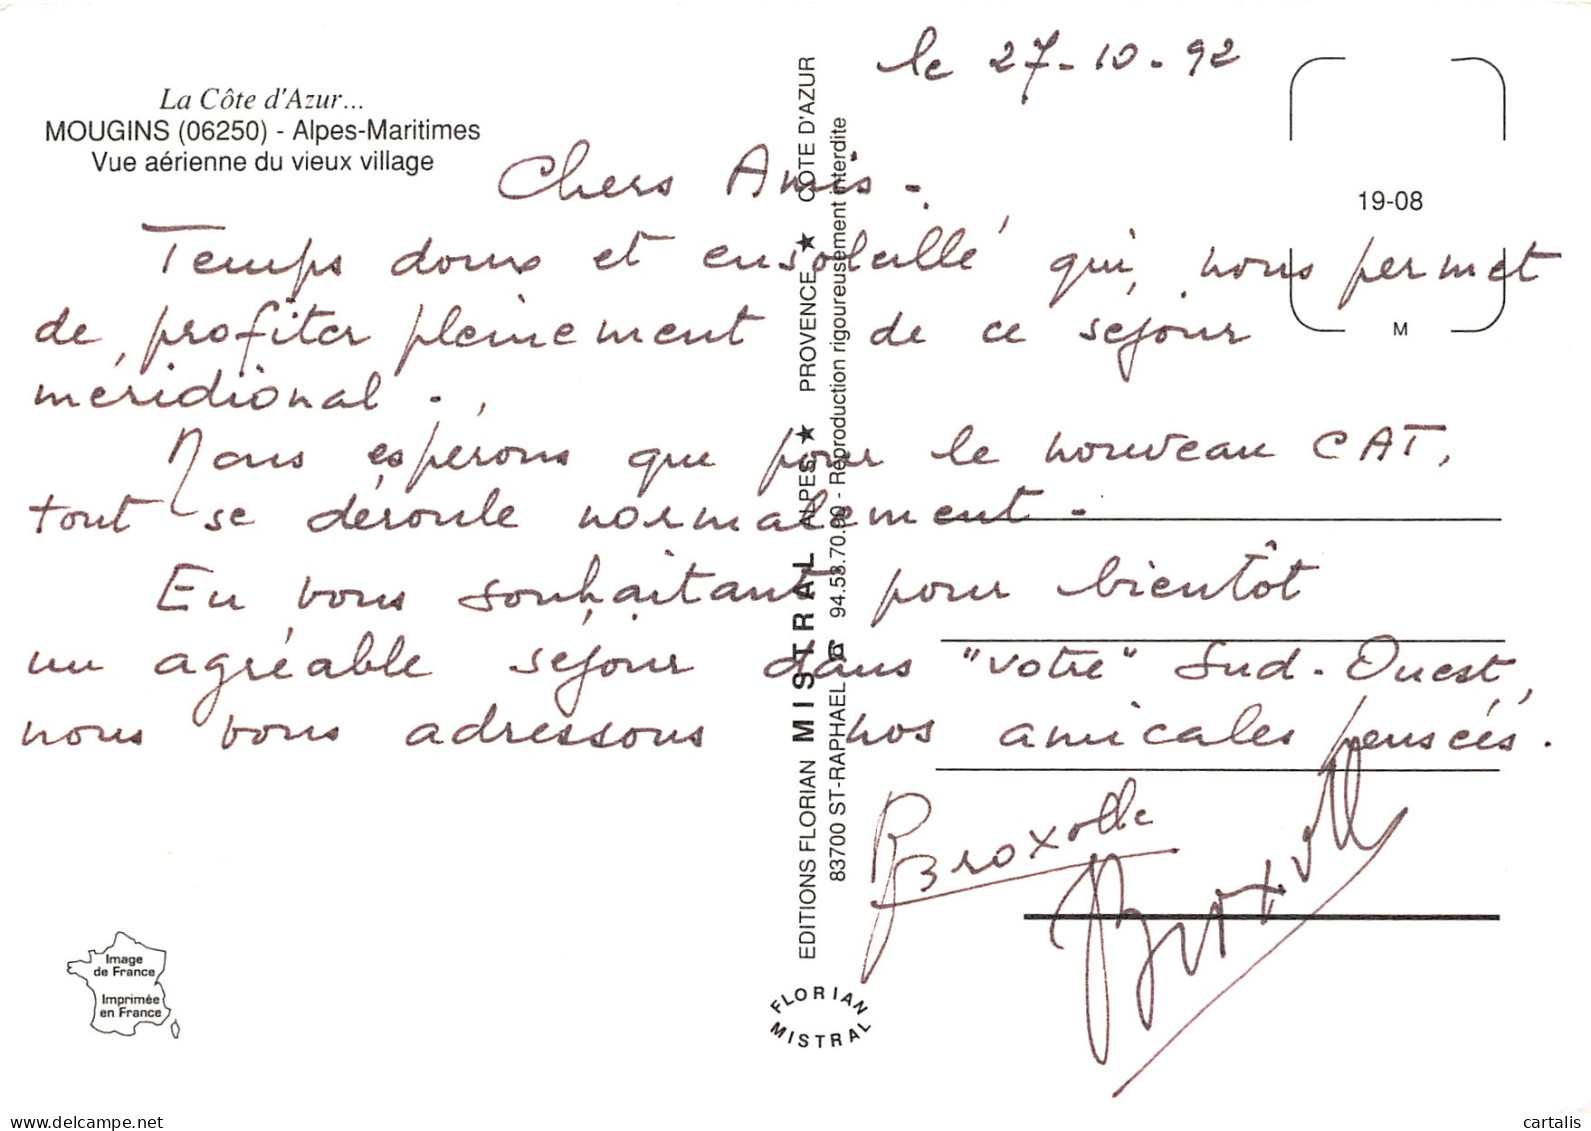 La Côte d'Azur...
MOUGINS (06250) - Alpes-Maritimes
Vue aérienne du vieux village
le 27-10-92
19-08
M
Chers Amis-
Temps doux et ensoleillé qui nous permet
de profiter pleinement de ce séjour
méridional.
Nous espérons que pour le nouveau CAT,
tout se déroule normalement-
En vous souhaitant pour bientôt
un agréable séjour dans "votre" Sud-Ouest,
nous vous adressons nos amicales pensées.
EDITIONS FLORIAN MISTRAL ALPES ★ PROVENCE ★ COTE D'AZUR
83700 ST-RAPHAEL 94.53.70.90 - Reproduction rigoureusement interdite
Image
de France
Imprimée
en France
FLORIAN
MISTRAL
delcampe.net
cartalis